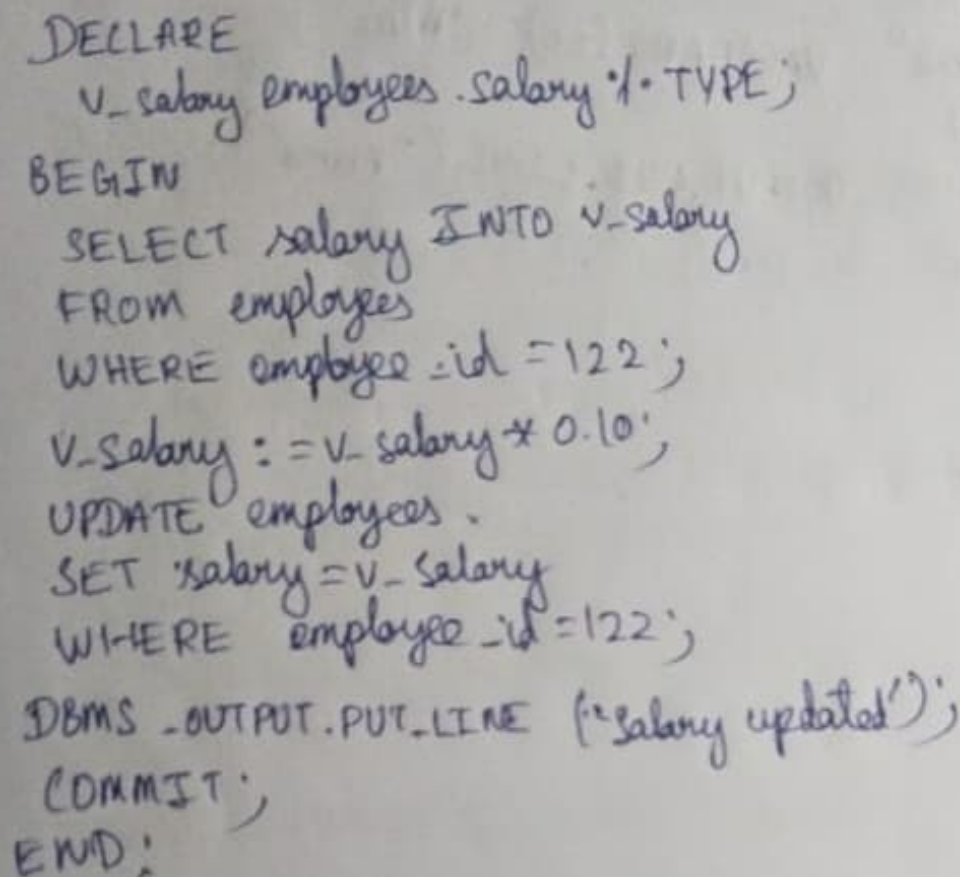 DECLARE
v_salary employees.salary%TYPE;
BEGIN
SELECT salary INTO v_salary
FROM employees
WHERE employee_id = 122;
v_salary := v_salary * 0.10;
UPDATE employees.
SET salary = v_salary
WHERE employee_id = 122;
DBMS_OUTPUT.PUT_LINE ('salary updated');
COMMIT;
END;